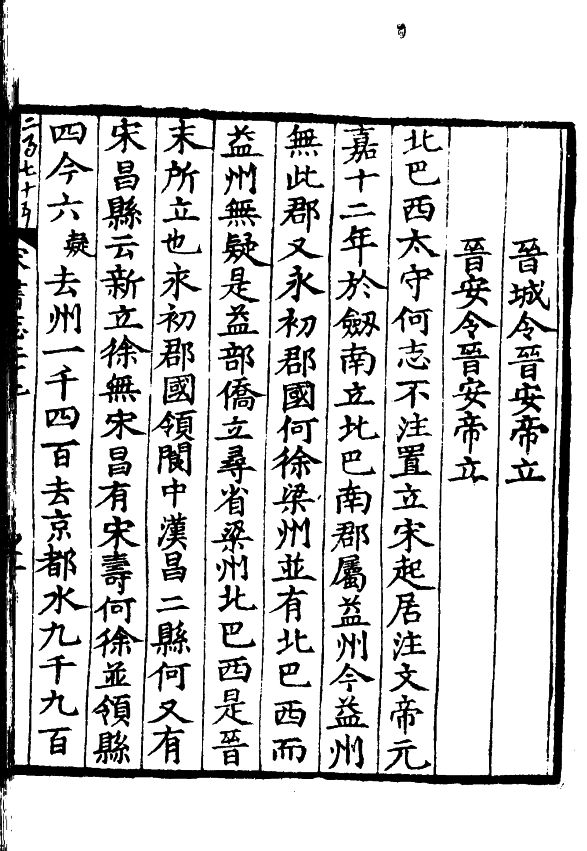 晉城令晉安帝立
晉安令晉安帝立
北巴西太守何志不注置立宋起居注文帝元
嘉十二年於劔南立北巴南郡屬益州今益州
無此郡又永初郡國何徐梁州並有北巴西而
益州無疑是益部僑立尋省梁州北巴西是晉
末所立也永初郡國領閬中漢昌二縣何又有
宋昌縣云新立徐無宋昌有宋壽何徐並領縣
四今六疑去州一千四百去京都水九千九百
二百七十五